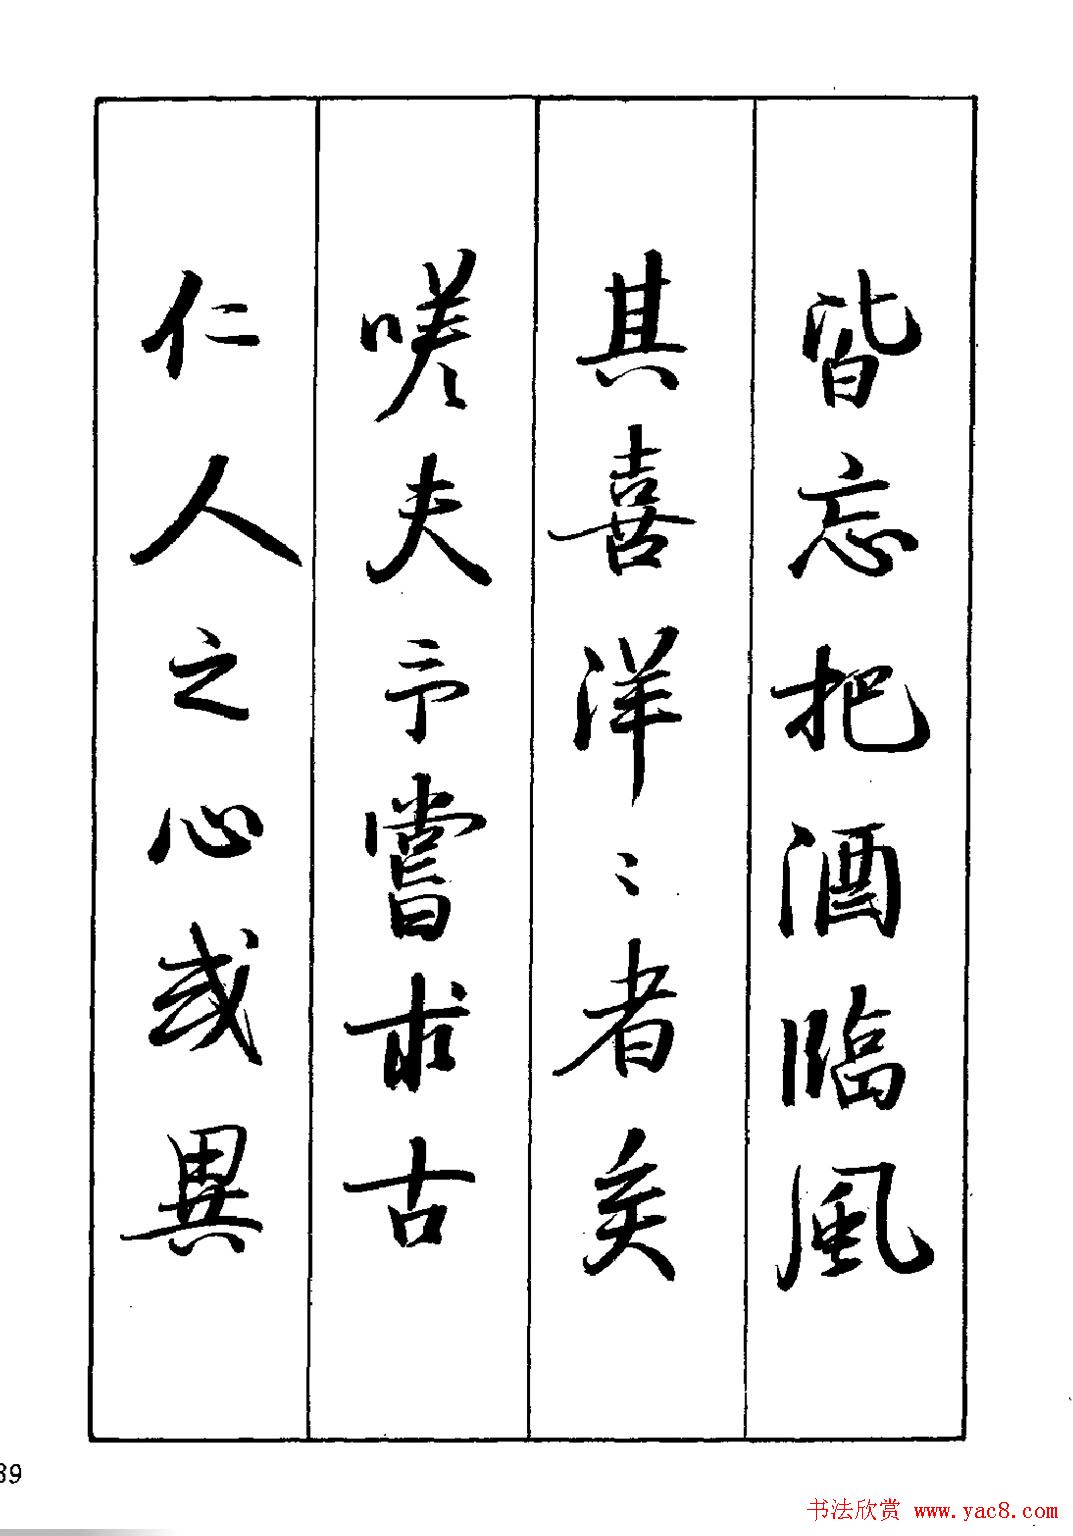 皆忘把酒臨風
其喜洋〻者矣
嗟夫予嘗求古
仁人之心或異
39
书法欣赏 www.yac8.com